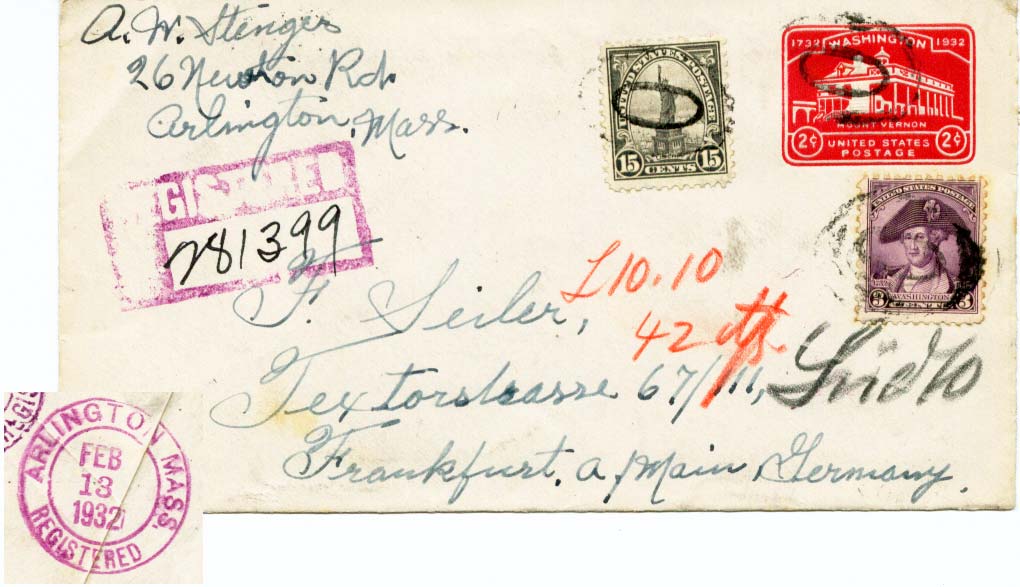 A. W. Stenger
26 Newton Rd.
Arlington, Mass.
UNITED STATES POSTAGE
15 CENTS 15
1732 WASHINGTON 1932
MOUNT VERNON
2¢ UNITED STATES 2¢
POSTAGE
UNITED STATES POSTAGE
WASHINGTON
3 CENTS 3
REGISTERED
281399
F. Seiler,
10.10
42
Textorstrasse 67/III,
Frankfurt, a/Main, Germany.
ARLINGTON MASS.
FEB
13
1932
REGISTERED